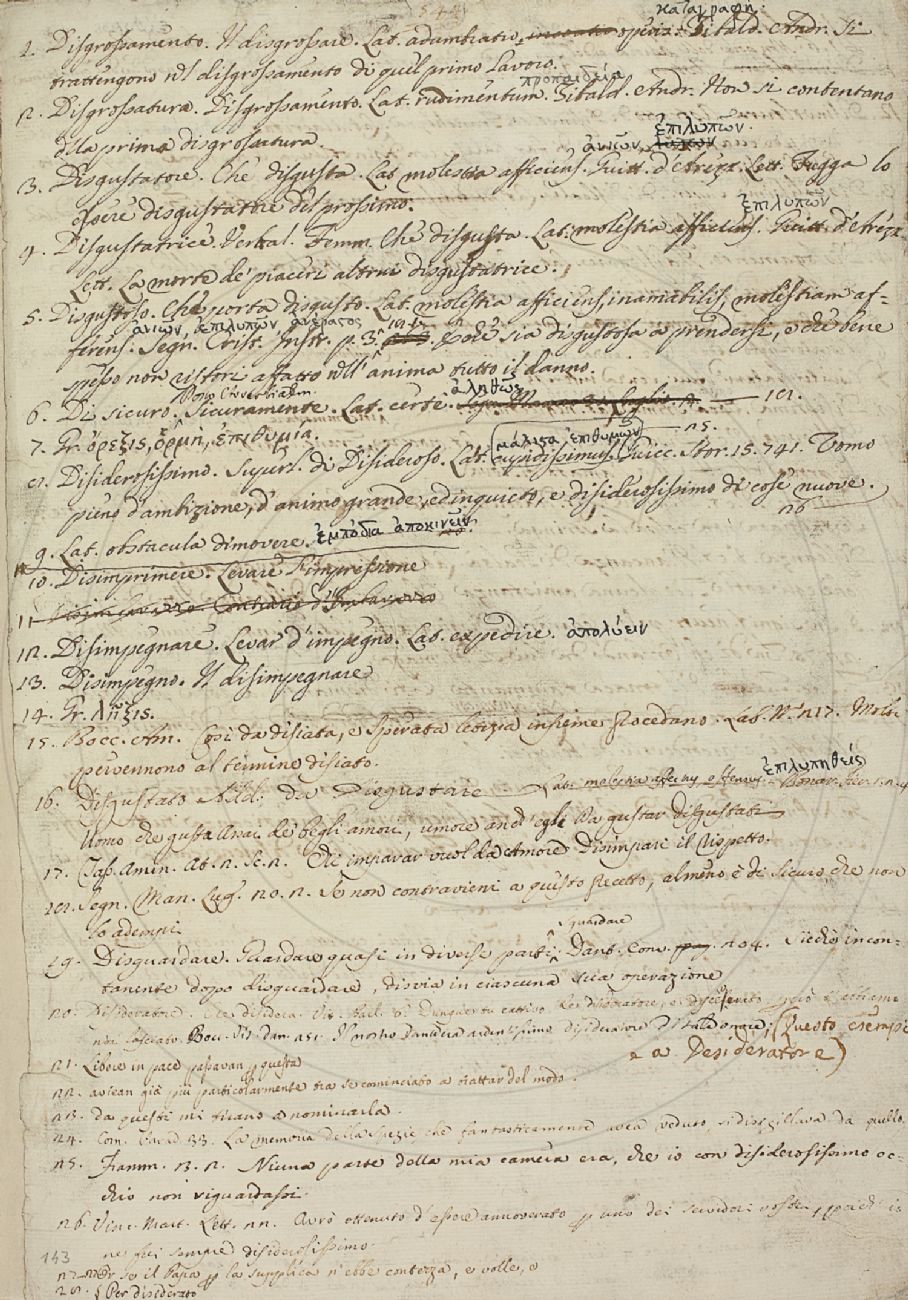 (544)
καταγραφή.
1. Disgrossamento. Il disgrossare. Lat. adumbratio, operis. Tibald. Andr. Si
trattengono nel disgrossamento di quel primo Lavoro.
προπαιδεία
2. Disgrossatura. Disgrossamento. Lat. rudimentum. Tibald. Andr. Non si contentano
della prima disgrossatura.
ἀνιῶν, ἐπιλυπῶν.
3. Disgustatore. Che disgusta. Lat. molestia afficiens. Guitt. d'Arezz. Lett. Fugga lo
essere disgustatore del prossimo.
ἐπιλυπῶν
4. Disgustatrice. Verbal. Femm. Che disgusta. Lat. molestia afficiens. Guitt. d'Arezz.
Lett. La morte de' piaceri altrui disgustatrice.
5. Disgustoso. Che porta disgusto. Lat. molestia afficiens, inamabilis, molestiam af-
ἀνιῶν, ἐπιλυπῶν, ἀνέραστος
ficiens. Segn. Crist. Instr. p. 3. sia disgustosa a prendersi, e che bene
spesso non ristori affatto nell'anima tutto il danno.
ἀληθῶς
6. Di sicuro. Sicuramente. Lat. certe. — 18.
7. Gr. ὄρεξις, ὁρμή, ἐπιθυμία. — 25.
μάλιστα ἐπιθυμῶν
8. Disiderosissimo. Superl. di Disideroso. Lat. cupidissimus. Guicc. Stor. 15. 741. Uomo
pieno d'ambizione, d'animo grande, ed inquieto, e disiderosissimo di cose nuove.
26
9. Lat. obstacula dimovere. ἐμπόδια ἀποκινεῖν
10. Disimprimere. Levare l'impressione
11. Contrario d'Imbarazzo
12. Disimpegnare. Levar d'impegno. Lat. expedire. ἀπολύειν
13. Disimpegno. Il disimpegnare
14. Gr. λῆξις.
15. Bocc. Am. Così da disiata, e sperata letizia insieme procedano. Lab. N. 217. Molti
pervennono al termine disiato.
ἐπιλυπηθείς
16. Disgustato Add. da Disgustare. Lat. molestia affectus, offensus. Buonar. Fier.
Uomo che gusta Assai de' begli amori, umore anch'egli Da gustar disgustati
17. Tass. Amin. At. 2. Sc. 2. Chi imparar vuol da Amore Disimpari il rispetto.
18. Segn. Man. Lug. 20. 2. Se non contravieni a questo precetto, almeno è di sicuro che non
lo adempi.
sguardare
19. Disguardare. Guardare quasi in diverse parti. Dant. Conv. 204. Siedè incon-
tanente dopo disguardare, disvia in ciascuna sua operazione
20. Disideratore. Che disidera.
Bocc. Vit. Dant. 251. Il nostro Dante ardentissimo disideratore (Questo esempio
e a Desideratore)
21. Libere in pace passavan per questa
22. avean già più particolarmente tra se cominciato a trattar del modo.
23. da questi mi tirano a nominarla.
24. Com. Parad. 33. La memoria della spezie che fantasticamente avea veduto, si disigillava da quello.
25. Fiamm. 3. 2. Niuna parte della mia camera era, che io con disiderosissimo oc-
chio non riguardassi.
26. Vinc. Mart. Lett. 22. Avrò ottenuto d'essere annoverato per uno dei servidori vostri, perchè io
ne fui sempre disiderosissimo.
143
27. se il Papa per la supplica n'ebbe contezza, e volle, e
28. § Per disiderato